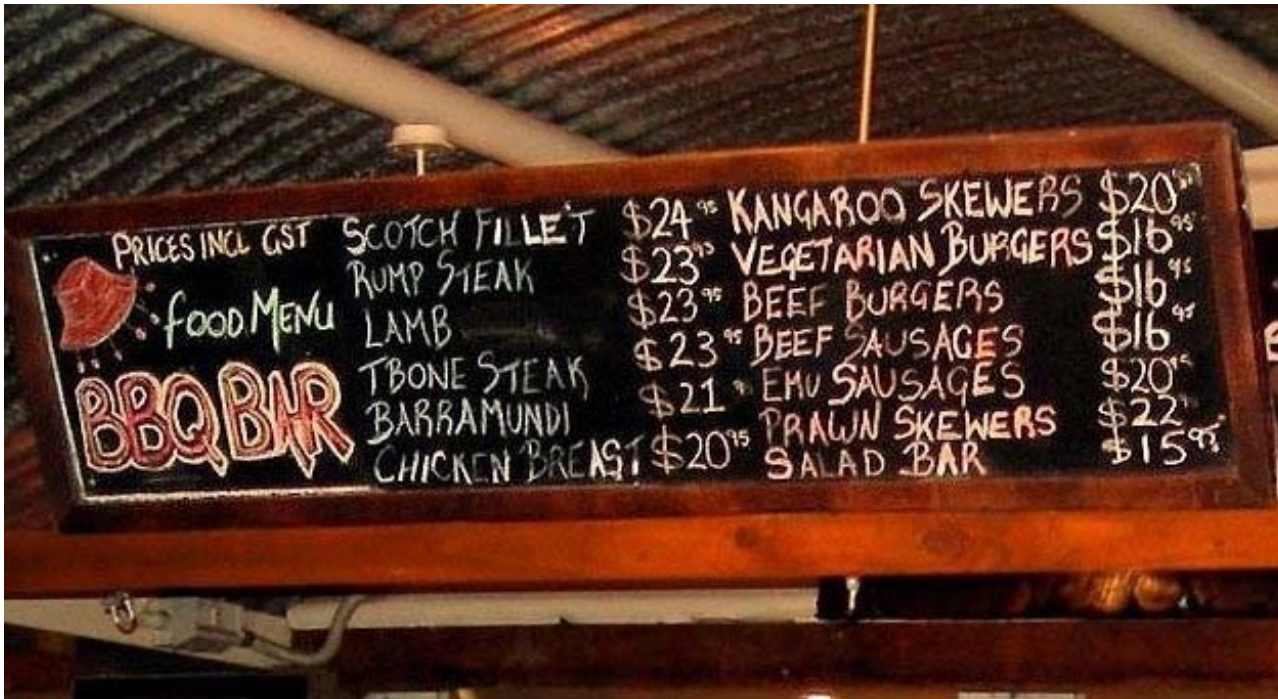 PRICES INCL GST
FOOD MENU
BBQ BAR
SCOTCH FILLET $24 95
RUMP STEAK $23 95
LAMB $23 95
TBONE STEAK $23 95
BARRAMUNDI $21
CHICKEN BREAST $20 95
KANGAROO SKEWERS $20
VEGETARIAN BURGERS $16 95
BEEF BURGERS $16 95
BEEF SAUSAGES $16 95
EMU SAUSAGES $20 95
PRAWN SKEWERS $22
SALAD BAR $15 95